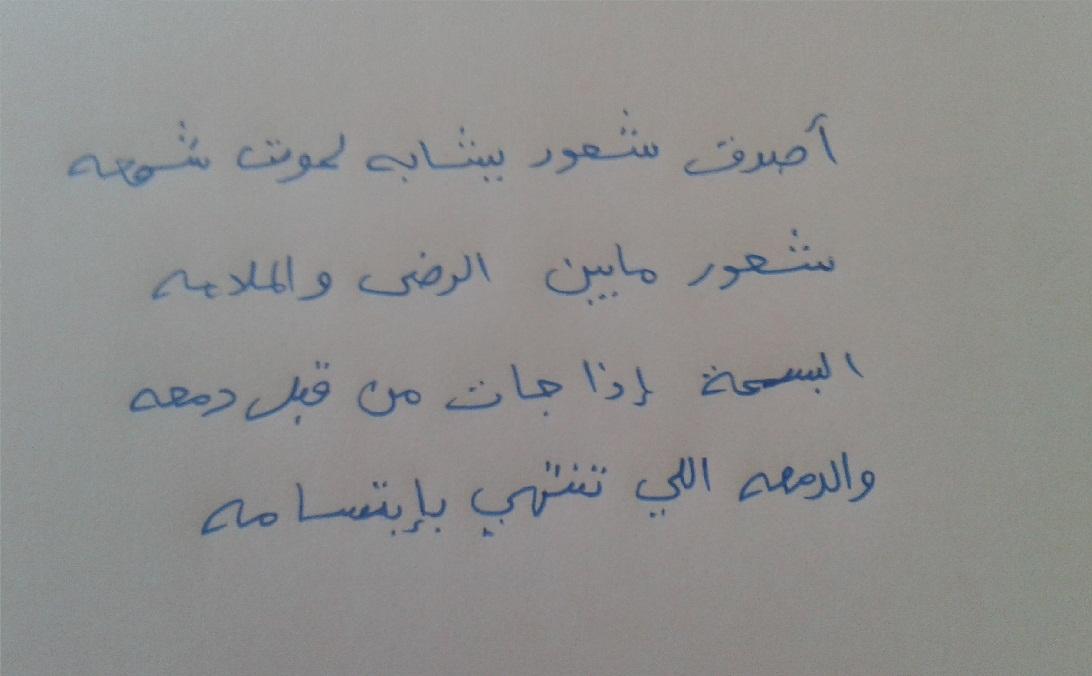 أصدق شعور يشابه لموت شمعه
شعور مابين الرضى والملامه
البسمة إذا جات من قبل دمعه
والدمعه اللي تنتهي بإبتسامه